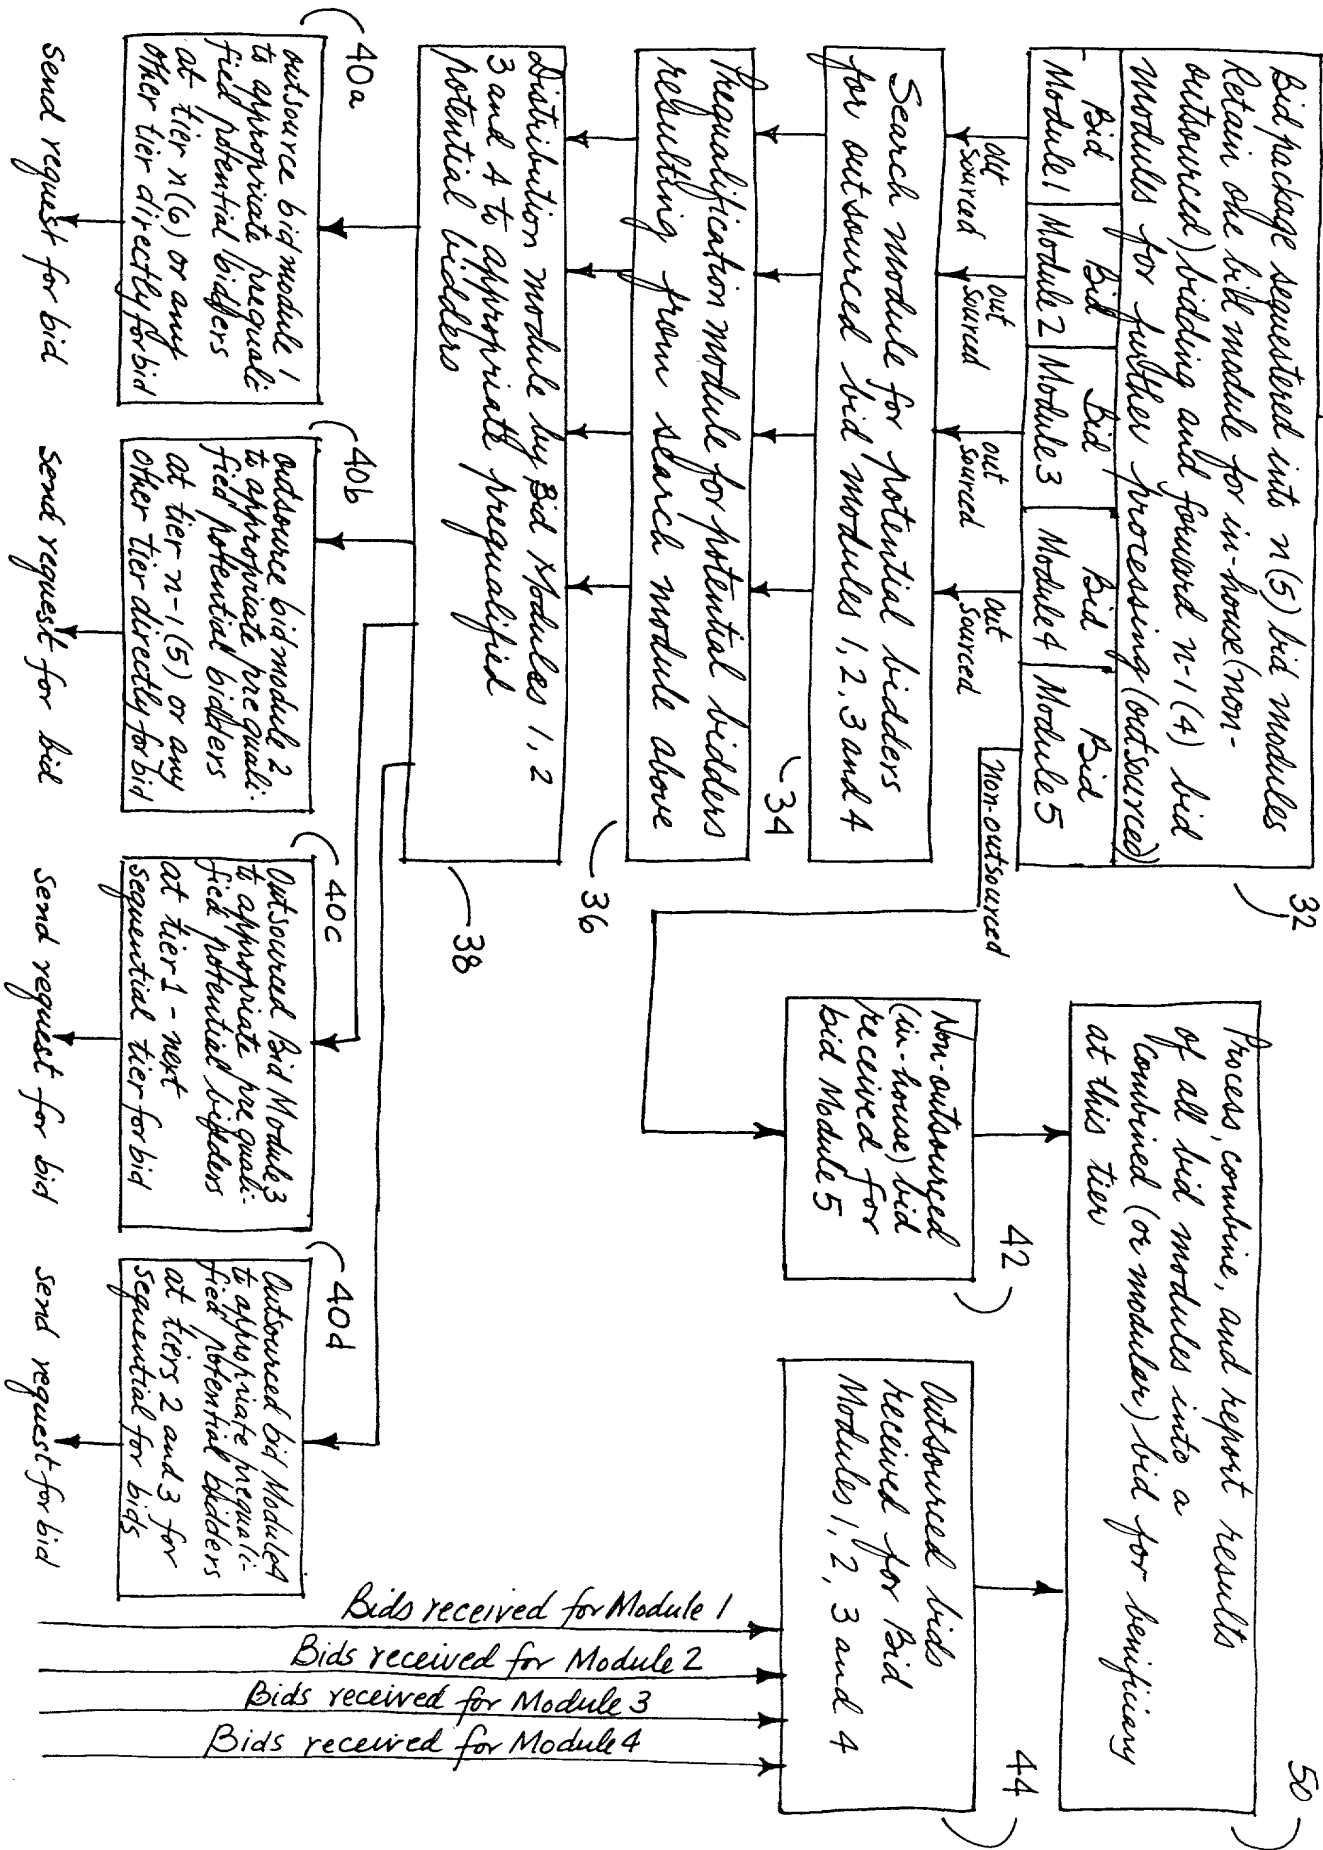 Bid package sequestered into n(5) bid modules
Retain one bid module for in-house (non-
outsourced) bidding and forward n-1(4) bid
modules for further processing (outsourced)
Bid
Module 1
Bid
Module 2
Bid
Module 3
Bid
Module 4
Bid
Module 5
32
out
sourced
out
sourced
out
sourced
out
sourced
non-outsourced
Search module for potential bidders
for outsourced bid modules 1, 2, 3 and 4
34
Prequalification module for potential bidders
resulting from search module above
36
Distribution module by Bid Modules 1, 2
3 and 4 to appropriate prequalified
potential bidders
38
40a
outsource bid module 1
to appropriate prequali
fied potential bidders
at tier n(6) or any
other tier directly for bid
Send request for bid
40b
outsource bid module 2
to appropriate prequali-
fied potential bidders
at tier n-1(5) or any
other tier directly for bid
Send request for bid
40c
Outsourced Bid Module 3
to appropriate prequali-
fied potential bidders
at tier 1 - next
sequential tier for bid
Send request for bid
40d
Outsourced bid Module 4
to appropriate prequali-
fied potential bidders
at tiers 2 and 3 for
sequential for bids
Send request for bid
Process, combine, and report results
of all bid modules into a
combined (or modular) bid for benificiary
at this tier
50
Non-outsourced
(in-house) bid
received for
bid Module 5
42
Outsourced bids
received for Bid
Modules 1, 2, 3 and 4
44
Bids received for Module 1
Bids received for Module 2
Bids received for Module 3
Bids received for Module 4